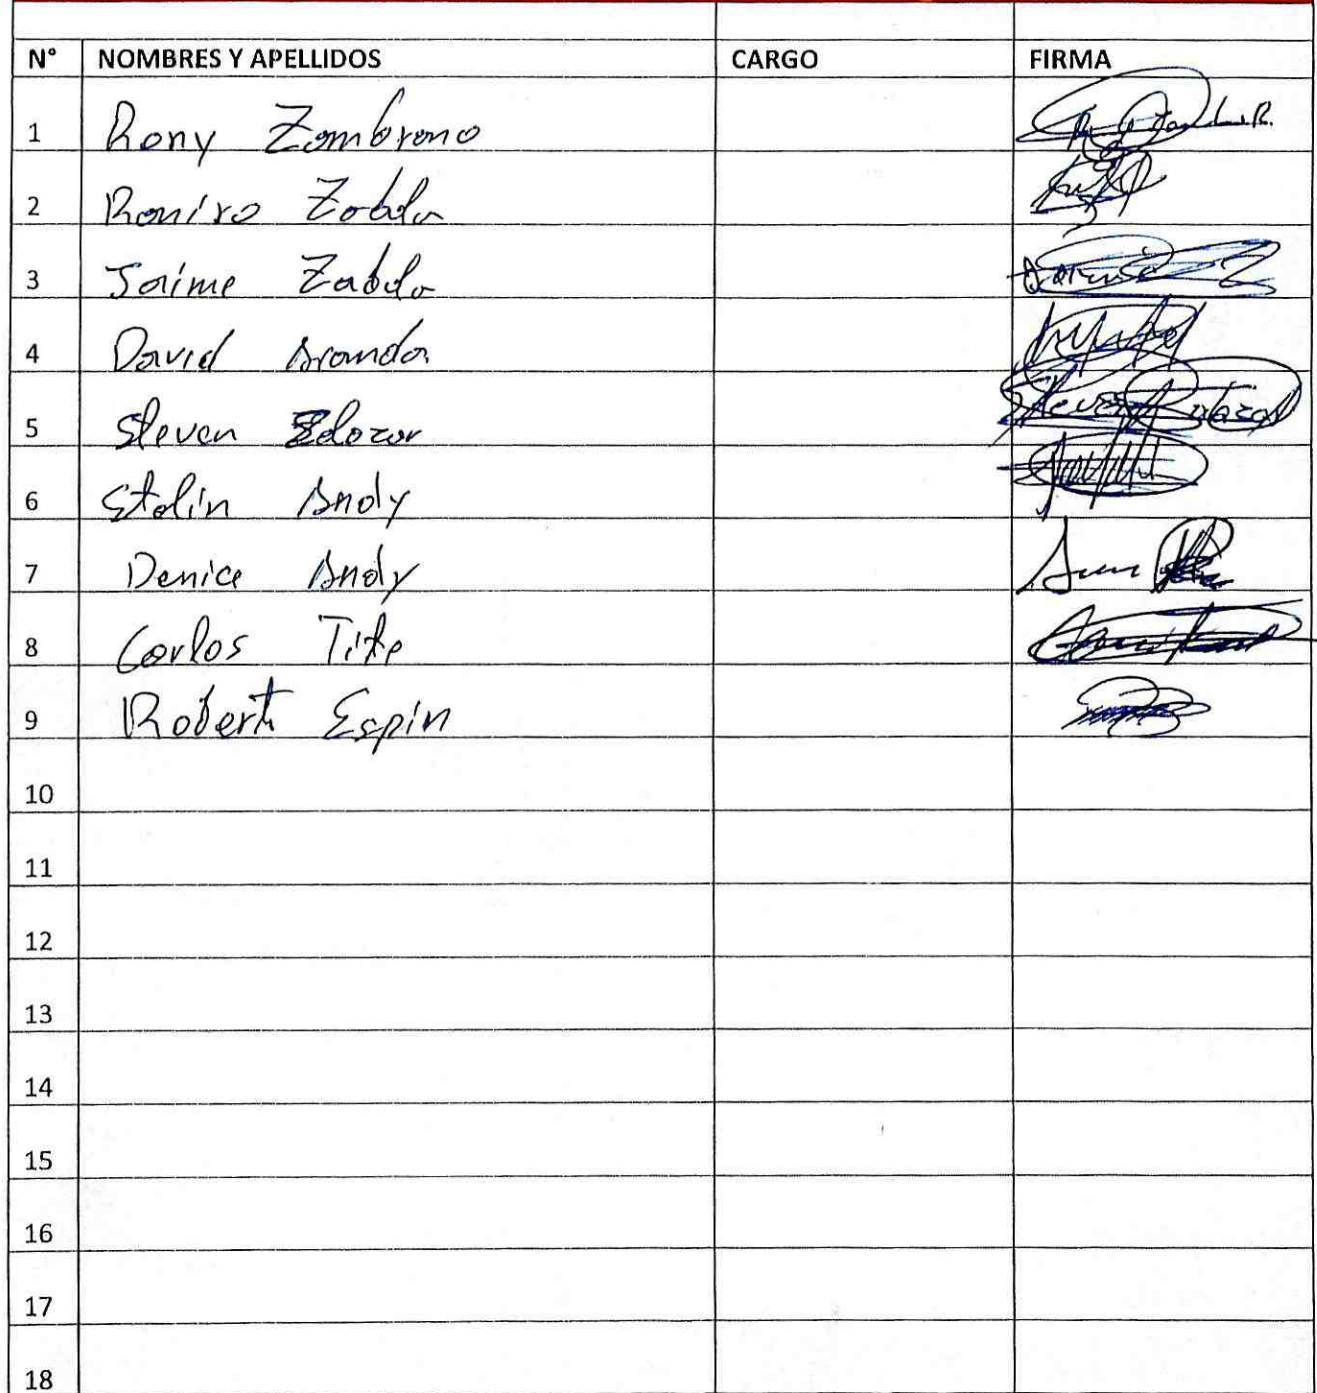 N° NOMBRES Y APELLIDOS CARGO FIRMA
1 Rony Zambrano
2 Ramiro Zabala
3 Jaime Zabala
4 David Aranda
5 Steven
6 Stalin Andy
7 Denice Andy
8 Carlos Tite
9 Robert Espin
10
11
12
13
14
15
16
17
18